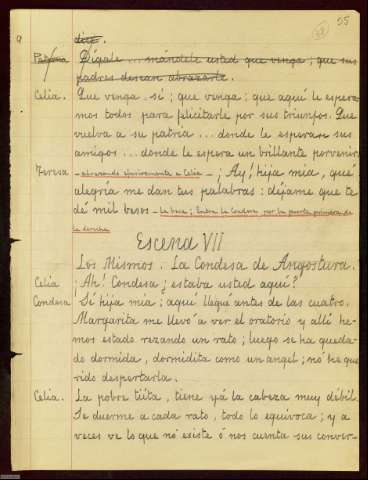 55
9 dice.
Paloma Dígale... mándele usted que venga; que sus
padres desean abrazarle.
Celia. Que venga sí; que venga: que aquí le espera-
mos todos para felicitarle por sus triunfos. Que
vuelva a su patria... donde le esperan sus
amigos... donde le espera un brillante porvenir
Teresa - abrazando efusivamente a Celia - ¡Ay! hija mia, que
alegría me dan tus palabras: déjame que te
dé mil besos - La besa; Entra la Condesa por la puerta primera de
la derecha
Escena VII
Los Mismos. La Condesa de Angostura.
Celia ¡Ah! Condesa ¿estaba usted aquí?
Condesa Sí hija mia; aquí llegué antes de las cuatro.
Margarita me llevó a ver el oratorio y allí he-
mos estado rezando un rato; luego se ha queda-
do dormida, dormidita como un angel; no he que-
rido despertarla.
Celia. La pobre tiíta, tiene yá la cabeza muy débil.
Se duerme a cada rato, todo lo equivoca; y a
veces ve lo que nó existe ó nos cuenta sus conver-